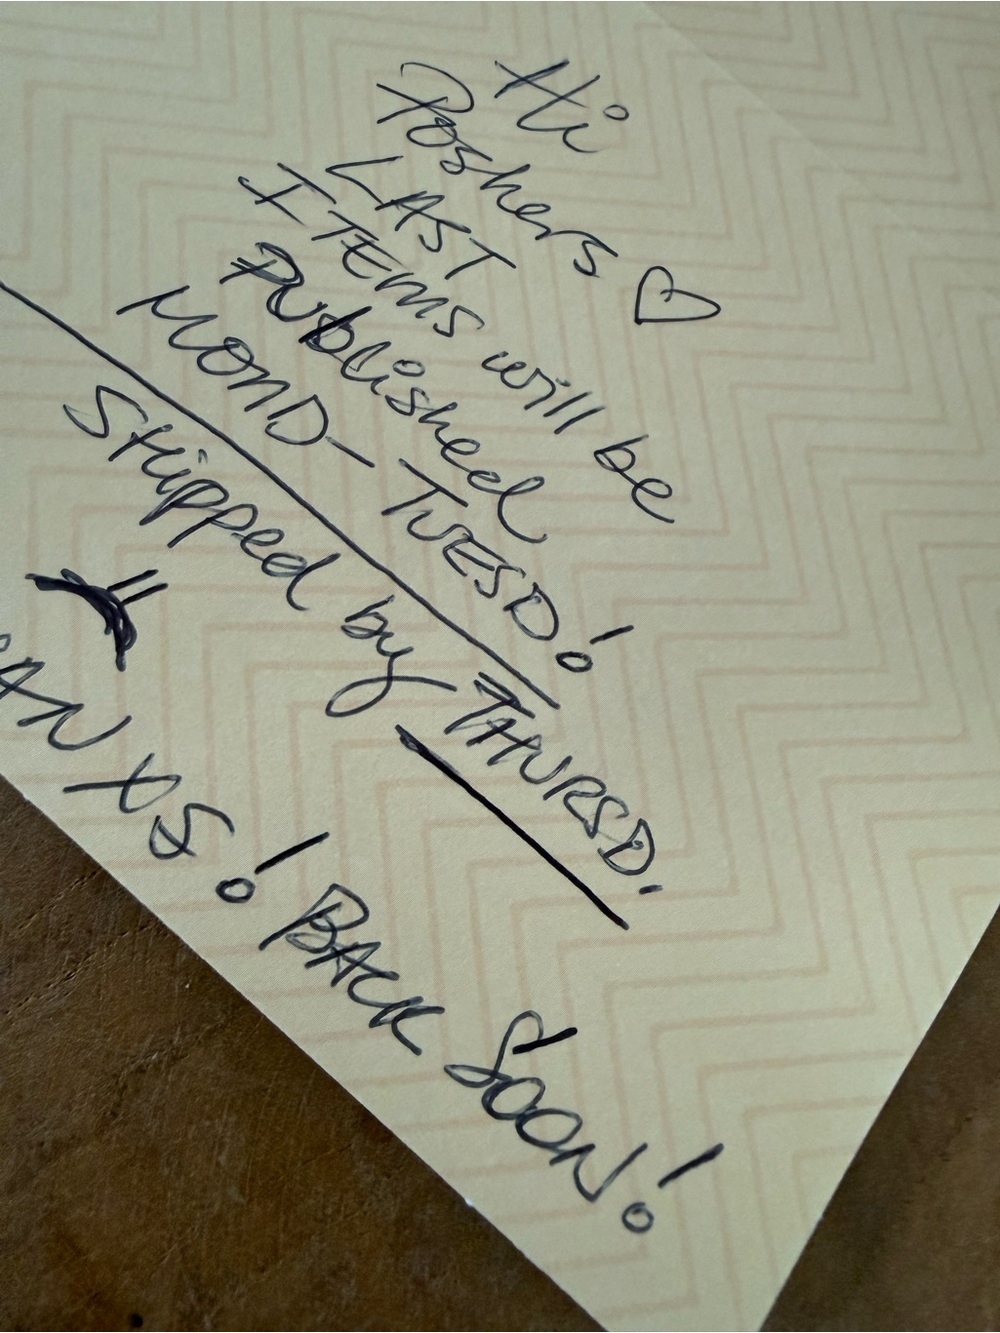 Hi
Poshers ♡
LAST
ITEMS will be
published
MOND - TUESD!
Shipped by THURSD.
XS! BACK SOON!